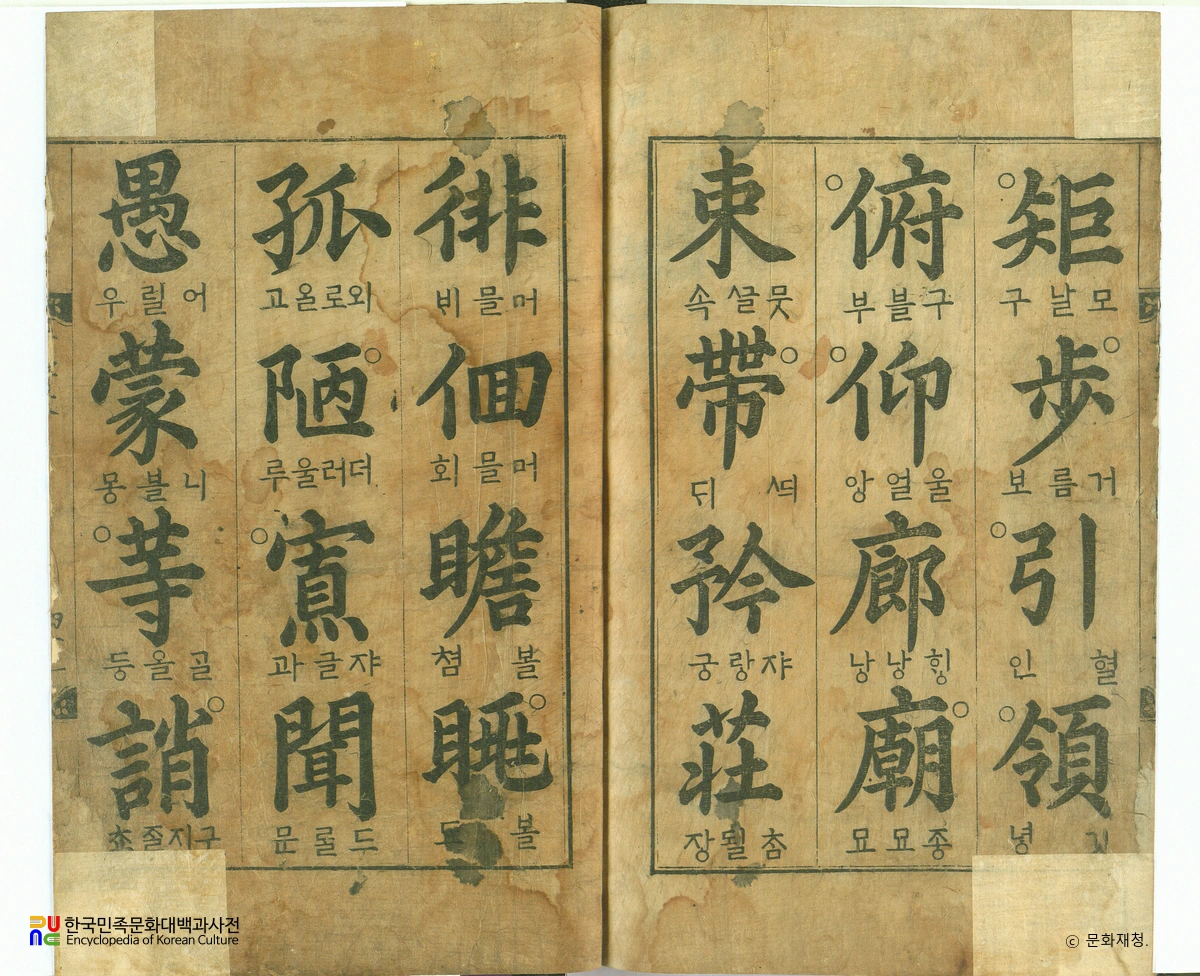 矩 모날 구
步 거름 보
引 혈 인
領 녕
俯 구블 부
仰 울얼 앙
廊 힝낭 낭
廟 종묘 묘
束 뭇 속
帶
矜 쟈랑 궁
莊 장
徘 머믈 비
徊 머믈 회
瞻 볼 쳠
眺 볼
孤 외로올 고
陋 더러울 루
寡 쟈글 과
聞 드롤 문
愚 어릴 우
蒙 니블 몽
等 골올 둥
誚 구지
한국민족문화대백과사전
Encyclopedia of Korean Culture
ⓒ 문화재청.